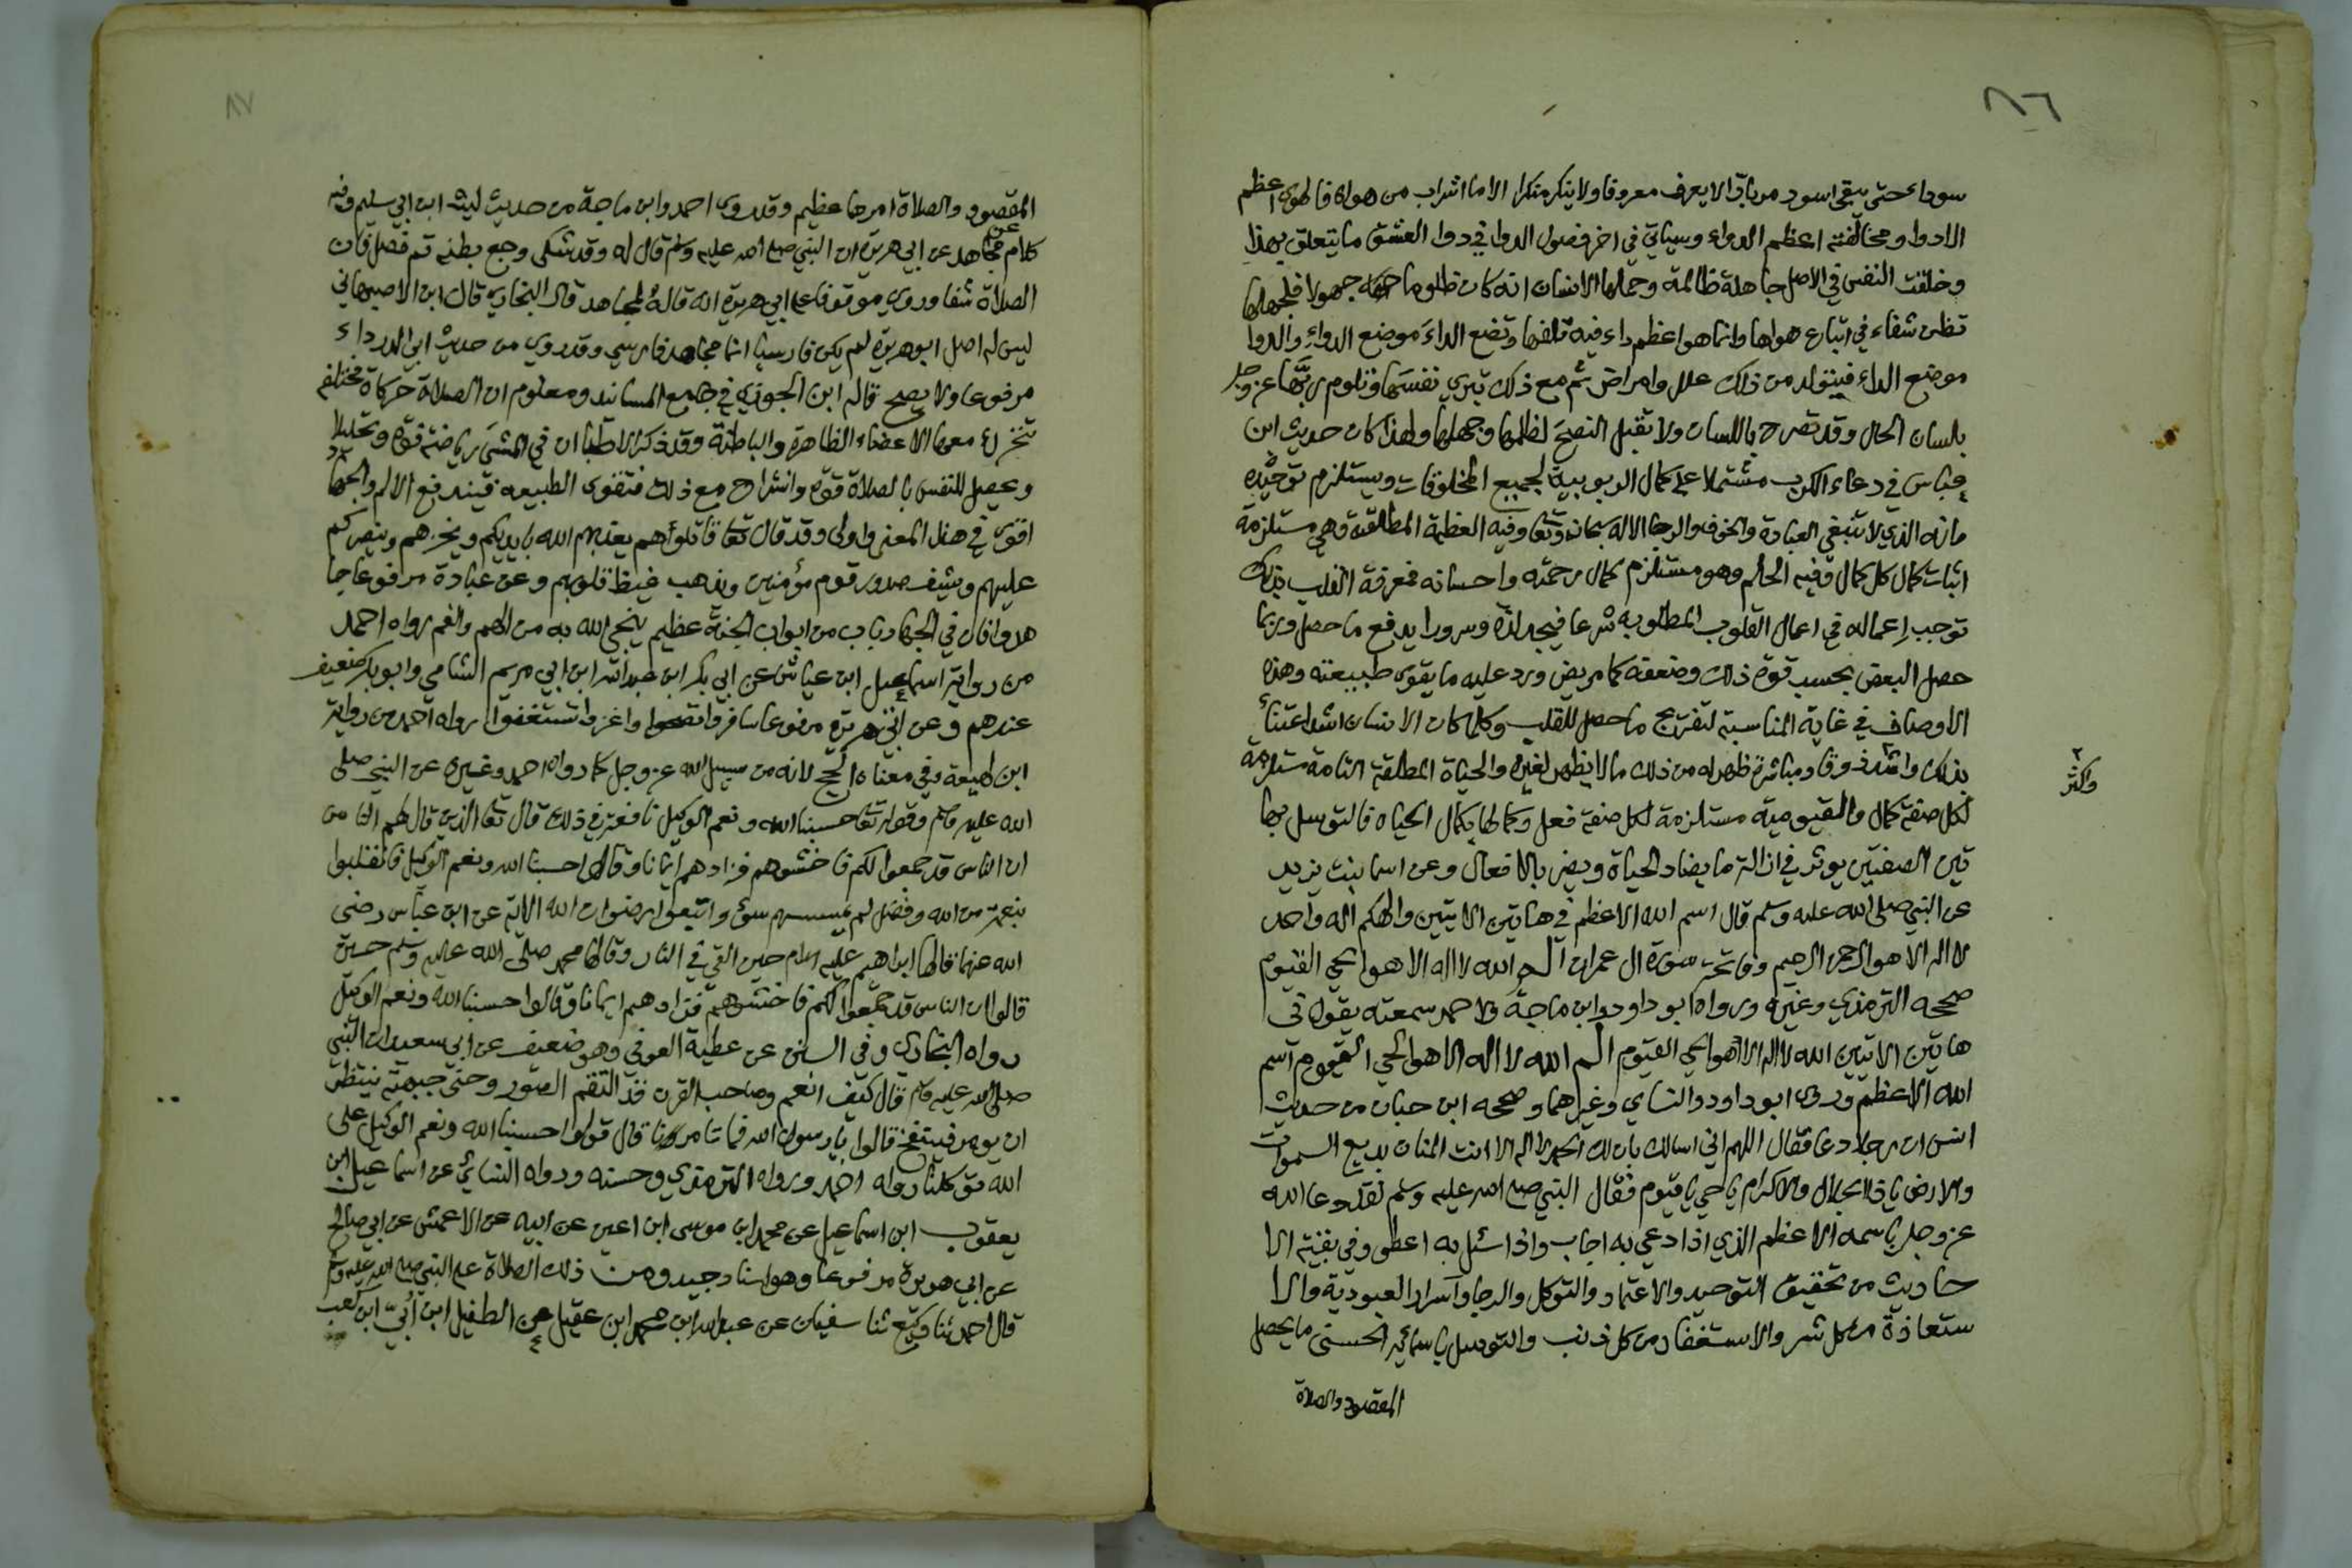 ٨٦
سوداء حتى يبقى اسود مربادّ الا يعرف معروفا ولا ينكر منكرا الا ما اشراب من هواه فالهوى اعظم
الادوا ومخالفته اعظم الدواء وسياتي في اخر فصول الدوا في دوا العشق ما يتعلق بهذا
وخلقت النفس في الاصل جاهلة ظالمة وحملها الانسان انه كان ظلوما جهولا فلجهلها
تظن شفاء في اتباع هواها وانما هو اعظم داء فيه تلفها وتضع الداءَ موضع الدواءِ والدوا
موضع الداء فيتولد من ذلك علل وامراض ثم مع ذلك تبري نفسَها وتلوم ربَّها عز وجل
بلسان الحال وقد تصرح باللسان ولا تقبل النصحَ لظلمها وجهلها ولهذا كان حديث ابن
عباس في دعاء الكرب مشتملا على كمال الربوبية لجميع المخلوقات ويستلزم توحيده
وانه الذي لا تنبغي العبادة والخوف والرجا الا له سبحانه وتعا وفيه العظمة المطلقة وهي مستلزمة
اثبات كمال كل كمال وفيه الحلم وهو مستلزم كمال رحمته واحسانه فمعرفة القلب بذلك
توجب اعماله في اعمال القلوب المطلوبه شرعا فيجد لذة وسرورا يدفع ما حصل وربما
حصل البعض بحسب قوة ذلك وضعفه كمريض ورد عليه ما يقوى طبيعته وهذه
الاوصاف في غاية المناسبة لتفريج ما حصل للقلب وكلما كان الانسان اشد اعتنأ
بذلك واشد ذوقا ومباشرة ظهر له من ذلك ما لا يظهر لغيره والحياة المطلقة التامة مستلزمة
واكثر
لكل صفة كمال والقيومية مستلزمة لكل صفة فعل وكمالها بكمال الحياه فالتوسل بها
تين الصفتين يوثر في ازالة ما يضاد الحياة ويضر بالافعال وعن اسما بنت يزيد
عن النبي صلى الله عليه وسلم قال اسم الله الاعظم في هاتين الايتين والهكم اله واحد
لا اله الا هو الرحمن الرحيم وفاتحة سورة ال عمران الم الله لا اله الا هو الحي القيوم
صححه الترمذي وغيره ورواه ابو داود وابن ماجة ولاحمد سمعته يقول في
هاتين الايتين الله لا اله الا هو الحي القيوم الم الله لا اله الا هو الحي القيوم اسم
الله الاعظم وروى ابو داود والنساي وغيرهما وصححه ابن حبان من حديث
انس ان رجلا دعا فقال اللهم اني اسالك بان لك الحمد لا اله الا انت المنان بديع السموات
والارض ياذا الجلال والاكرام ياحي ياقيوم فقال النبي صلى الله عليه وسلم لقد دعا الله
عز وجل باسمه الاعظم الذي اذا دعي به اجاب واذا سئل به اعطى وفي بقية الا
حاديث من تحقيق التوحيد والاعتماد والتوكل والرجا واسرار العبودية والا
ستعاذة من كل شر والاستغفار من كل ذنب والتوسل باسمائه الحسنى ما يحصل
المقصود والصلاة
٨٧
المقصود والصلاة امرها عظيم وقد روى احمد وابن ماجة من حديث ليث ابن ابي سليم وفيه
كلام عن مجاهد عن ابي هريرة ان النبي صلى الله عليه وسلم قال له وقد شكى وجع بطنه قم فصل فان
الصلاة شفا وروي موقوفا على ابي هريرة انه قاله لمجاهد قال البخاري قال ابن الاصبهاني
ليس له اصل ابو هريرة لم يكن فارسيا انما مجاهد فارسي وقد روي من حديث ابي الدرداء
مرفوعا ولا يصح قاله ابن الجوزي في جامع المسانيد ومعلوم ان الصلاة حركاة مختلفه
تتحرك معها الاعضاء الظاهرة والباطنة وقد ذكر الاطبا ان في المشي رياضة قوة وتحليلا
ويحصل للنفس بالصلاة قوة وانشراح مع ذلك فتقوى الطبيعه فيندفع الالم والجهاد
اقوى في هذا المعنى واولى وقد قال تعا قاتلوهم يعذبهم الله بايديكم ويخزهم وينصركم
عليهم ويشف صدور قوم مؤمنين ويذهب غيظ قلوبهم وعن عبادة مرفوعا جا
هدوا فان في الجهاد باب من ابواب الجنة عظيم ينجي الله به من الهم والغم رواه احمد
من رواية اسماعيل ابن عياش عن ابي بكر ابن عبدالله ابن ابي مريم الشامي وابو بكر ضعيف
عندهم وعن ابي هريرة مرفوعا سافروا تصحوا واغزوا تستغنوا رواه احمد من رواية
ابن لهيعة وفي معناه الحج لانه من سبيل الله عز وجل كما رواه احمد وغيره عن النبي صلى
الله عليه وسلم وقوله تعا حسبنا الله ونعم الوكيل نافعة في ذلك قال تعا الذين قال لهم الناس
ان الناس قد جمعوا لكم فاخشوهم فزادهم ايمانا وقالوا حسبنا الله ونعم الوكيل فانقلبوا
بنعمة من الله وفضل لم يمسسهم سوء واتبعوا رضوان الله الاية عن ابن عباس رضي
الله عنهما قالها ابراهيم عليه السلام حين القي في النار وقالها محمد صلى الله عليه وسلم حين
قالوا ان الناس قد جمعوا لكم فاخشوهم فزادهم ايمانا وقالوا حسبنا الله ونعم الوكيل
رواه البخاري وفي السنن عن عطية العوفي وهو ضعيف عن ابي سعيد ان النبي
صلى الله عليه وسلم قال كيف انعم وصاحب القرن قد التقم الصور وحنى جبهته ينتظر
ان يومر فينفخ قالوا يا رسول الله فما تامرنا قال قولوا حسبنا الله ونعم الوكيل على
الله توكلنا رواه احمد ورواه الترمذي وحسنه ورواه النسائي عن اسماعيل ابن
يعقوب ابن اسماعيل عن محمد ابن موسى ابن اعين عن ابيه عن الاعمش عن ابي صالح
عن ابي هريرة مرفوعا وهو اسناد جيد ومن ذلك الصلاة على النبي صلى الله عليه وسلم
قال احمد ثنا وكيع ثنا سفيان عن عبدالله ابن محمد ابن عقيل عن الطفيل ابن أبيّ ابن كعب